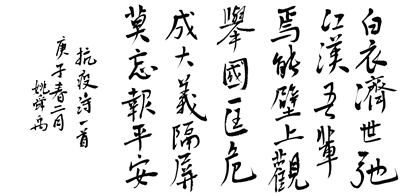 白衣濟世驰
江漢吾輩
焉能壁上觀
舉國匡危
成大義隔屏
莫忘報平安
抗疫诗一首
庚子春二月
姚